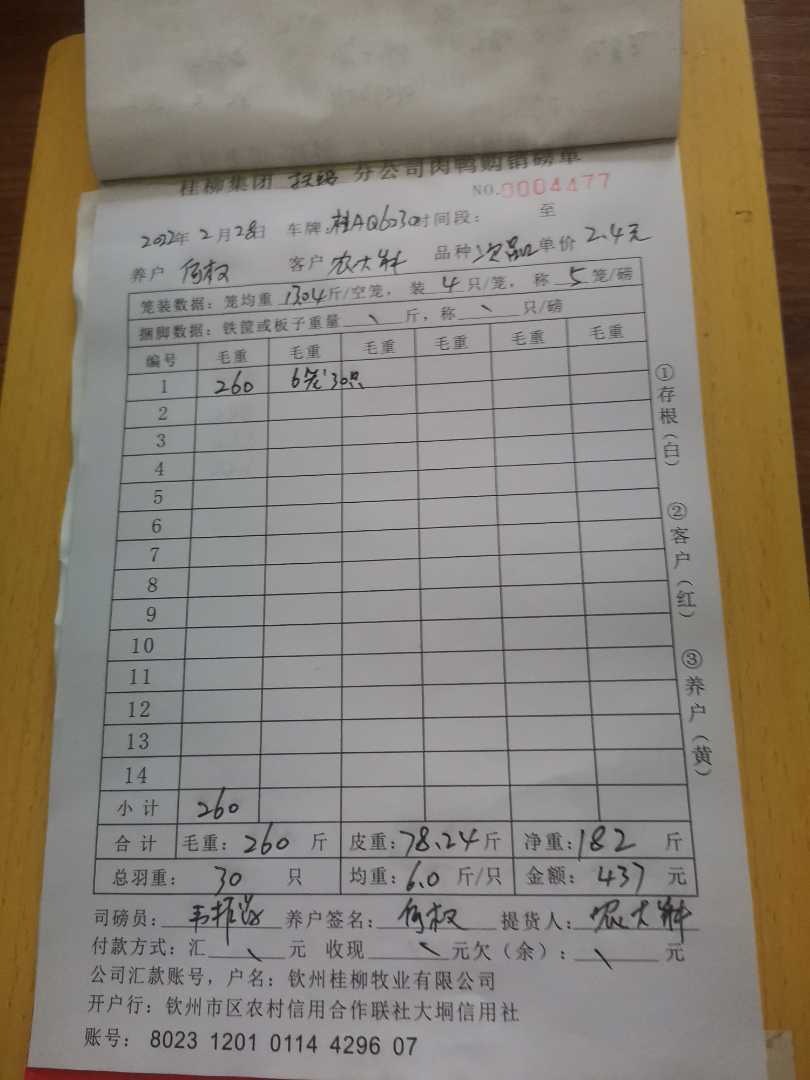 桂柳集团 分公司肉鸭购销磅单
NO.0004477
2022年2月28日 车牌:桂AQ6030时间段: 至
养户 何权 客户 农大科 品种 次品 单价 2.4元
笼装数据: 笼均重 13.04斤/空笼, 装 4 只/笼, 称 5 笼/磅
捆脚数据: 铁筐或板子重量 \ 斤, 称 \ 只/磅
编号 毛重 毛重 毛重 毛重 毛重 毛重
1 260 6笼 30只
2
3
4
5
6
7
8
9
10
11
12
13
14
小计 260
合计 毛重: 260 斤 皮重: 78.24斤 净重: 182 斤
总羽重: 30 只 均重: 6.0 斤/只 金额: 437 元
司磅员: 养户签名: 何权 提货人: 农大科
付款方式: 汇 \ 元 收现 \ 元欠(余): \ 元
公司汇款账号, 户名: 钦州桂柳牧业有限公司
开户行: 钦州市区农村信用合作联社大垌信用社
账号: 8023 1201 0114 4296 07
①存根(白)
②客户(红)
③养户(黄)